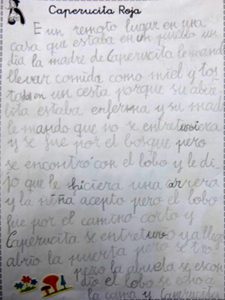 Caperucita Roja
En un remoto lugar en una
casa que estaba en un pueblo un
día la madre de Caperucita le mandó
llevar comida como miel y tos
en un cesta porque su abue
lita estaba enferma y su mad
le mando que no se entretuviera
y se fue por el bosque pero
se encontró con el lobo y le di
jo que le hiciera una carrera
y la niña acepto pero el lobo
fue por el camino corto y
Caperucita se entretuvo y a lleg
abrio la puerta pero se
pero la abuela se escon
dio el lobo se
la cama y Caperucita